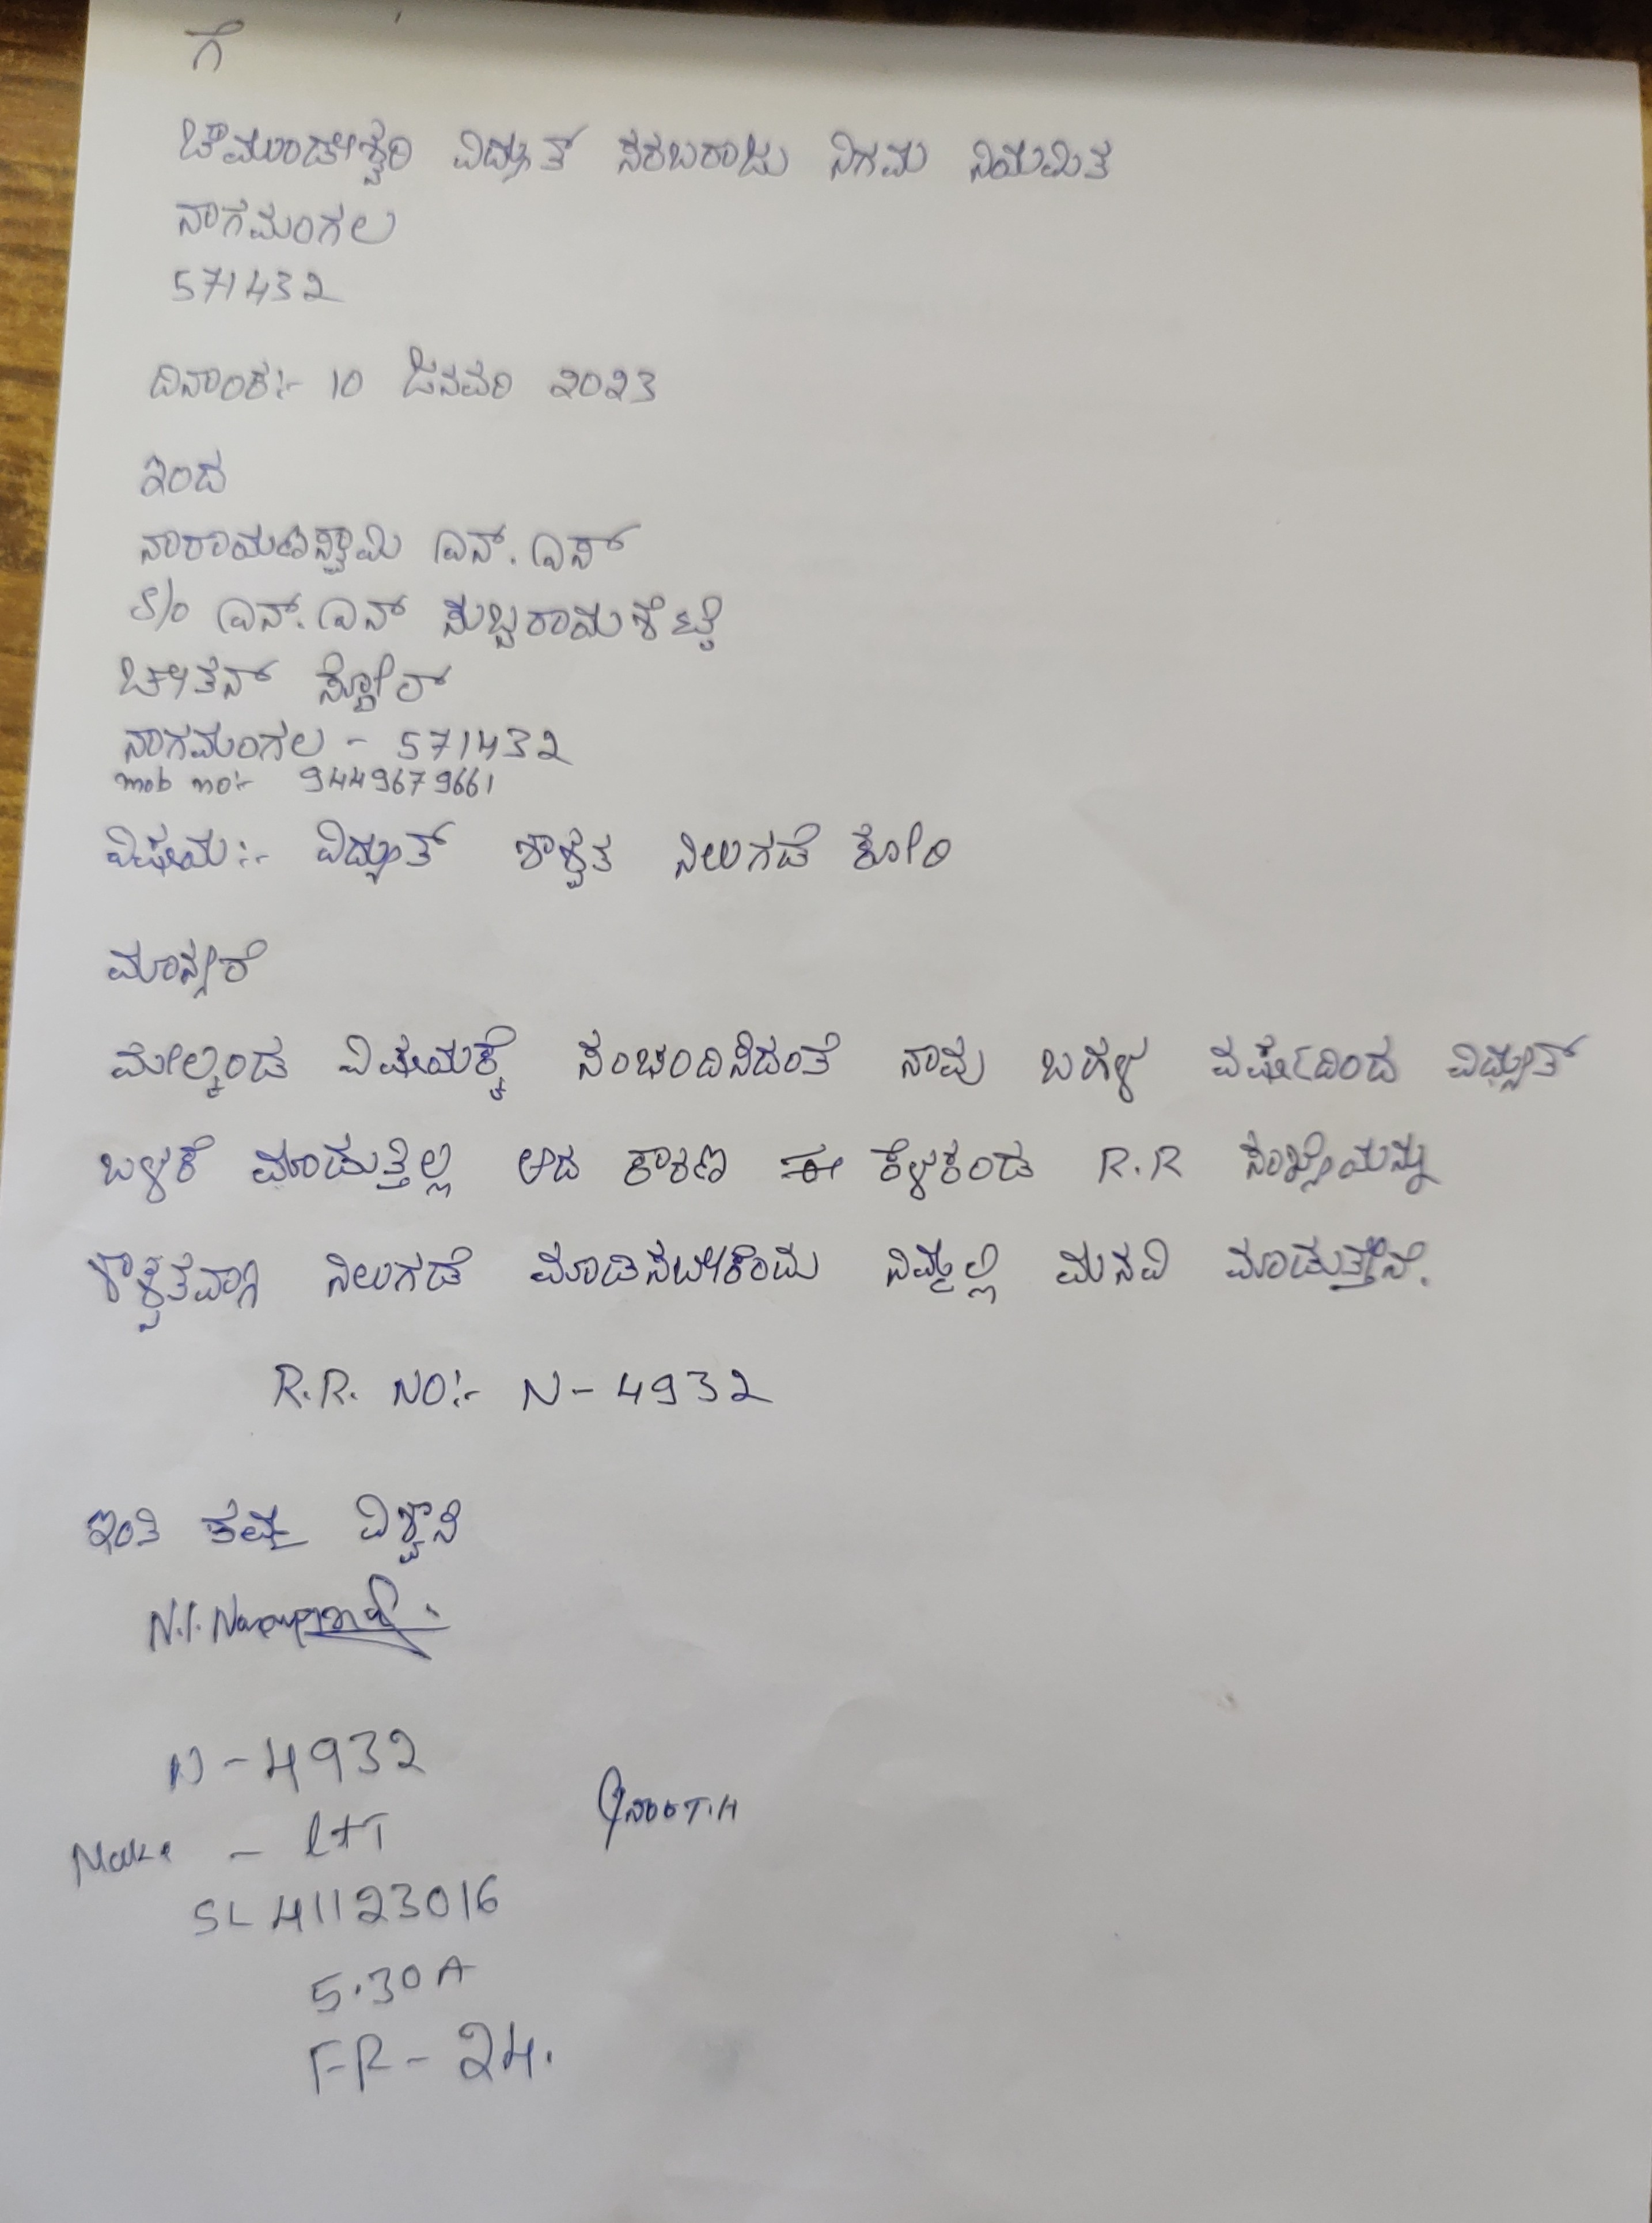 ಗೆ
ಚಾಮುಂಡೇಶ್ವರಿ ವಿದ್ಯುತ್ ಸರಬರಾಜು ನಿಗಮ ನಿಯಮಿತ
ನಾಗಮಂಗಲ
571432
ದಿನಾಂಕ:- 10 ಜನವರಿ 2023
ಇಂದ
ನಾರಾಯಣಸ್ವಾಮಿ ಎನ್.ಎಸ್
S/o ಎನ್.ಎನ್ ಸುಬ್ಬರಾಮಶೆಟ್ಟಿ
ಚೇತನ್ ಸ್ಟೋರ್
ನಾಗಮಂಗಲ - 571432
mob no:- 9449679661
ವಿಷಯ:- ವಿದ್ಯುತ್ ಶಾಶ್ವತ ನಿಲುಗಡೆ ಕೋರಿ
ಮಾನ್ಯರೆ
ಮೇಲ್ಕಂಡ ವಿಷಯಕ್ಕೆ ಸಂಬಂದಿಸಿದಂತೆ ನಾವು ಬಗಳ ವರ್ಷದಿಂದ ವಿದ್ಯುತ್
ಬಳಕೆ ಮಾಡುತ್ತಿಲ್ಲ ಆದ ಕಾರಣ ಈ ಕೆಳಕಂಡ R.R ಸಂಖ್ಯೆಯನ್ನು
ಶಾಶ್ವತವಾಗಿ ನಿಲುಗಡೆ ಮಾಡಿಸಬೇಕೆಂದು ನಿಮ್ಮಲ್ಲಿ ಮನವಿ ಮಾಡುತ್ತೇನೆ.
R.R. NO:- N-4932
ಇಂತಿ ತಮ್ಮ ವಿಶ್ವಾಸಿ
N-4932
Make - L+T
SL 41123016
5.30A
FR-24.